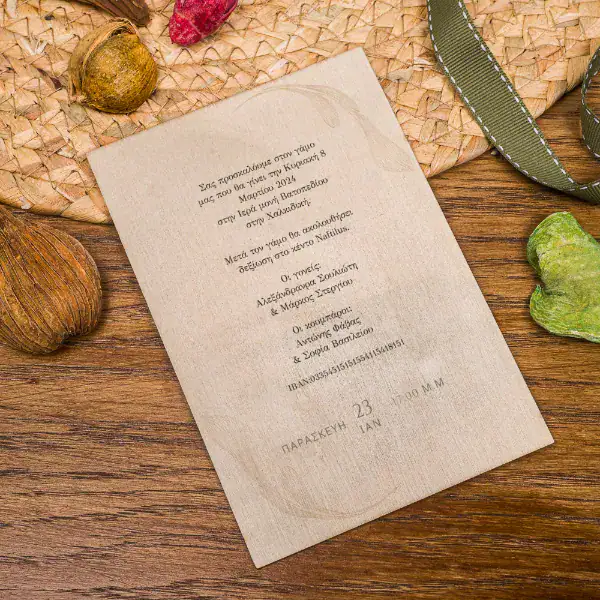 Σας προσκαλούμε στον γάμο
μας που θα γίνει την Κυριακή 8
Μαρτίου 2024
στην Ιερά μονή Βατοπεδίου
στην Χαλκιδική.
Μετά τον γάμο θα ακολουθήσει
δεξίωση στο κέντο Naftilus.
Οι γονείς:
Αλεξάνδρανρα Σουλιώτη
& Μάρκος Στεργίου
Οι κουμπάροι:
Αντώνης Φάβας
& Σοφία Βασιλείου
ΠΑΡΑΣΚΕΥΗ 23 17:00 Μ.Μ
ΙΑΝ